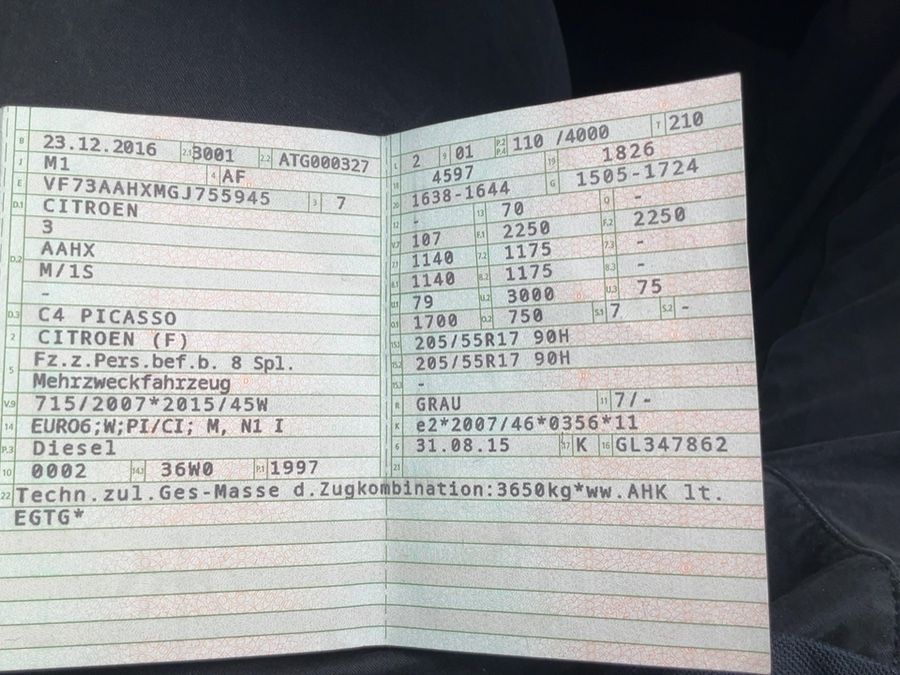 B 23.12.2016 2.1 3001 2.2 ATG000327
J M1 4 AF
E VF73AAHXMGJ755945 3 7
D.1 CITROEN
3
D.2 AAHX
M/1S
-
D.3 C4 PICASSO
2 CITROEN (F)
5 Fz.z.Pers.bef.b. 8 Spl.
Mehrzweckfahrzeug
V.9 715/2007*2015/45W
14 EURO6;W;PI/CI; M, N1 I
P.3 Diesel
10 0002 14.1 36W0 P.1 1997
22 Techn.zul.Ges-Masse d.Zugkombination:3650kg*ww.AHK lt.
EGTG*
L 2 9 01 P.2 P.4 110 /4000 T 210
18 4597 19 1826
20 1638-1644 G 1505-1724
12 - 13 70 Q -
V.7 107 F.1 2250 F.2 2250
7.1 1140 7.2 1175 7.3 -
8.1 1140 8.2 1175 8.3 -
U.1 79 U.2 3000 U.3 75
O.1 1700 O.2 750 S.1 7 S.2 -
15.1 205/55R17 90H
15.2 205/55R17 90H
15.3 -
R GRAU 11 7/-
K e2*2007/46*0356*11
6 31.08.15 17 K 16 GL347862
21